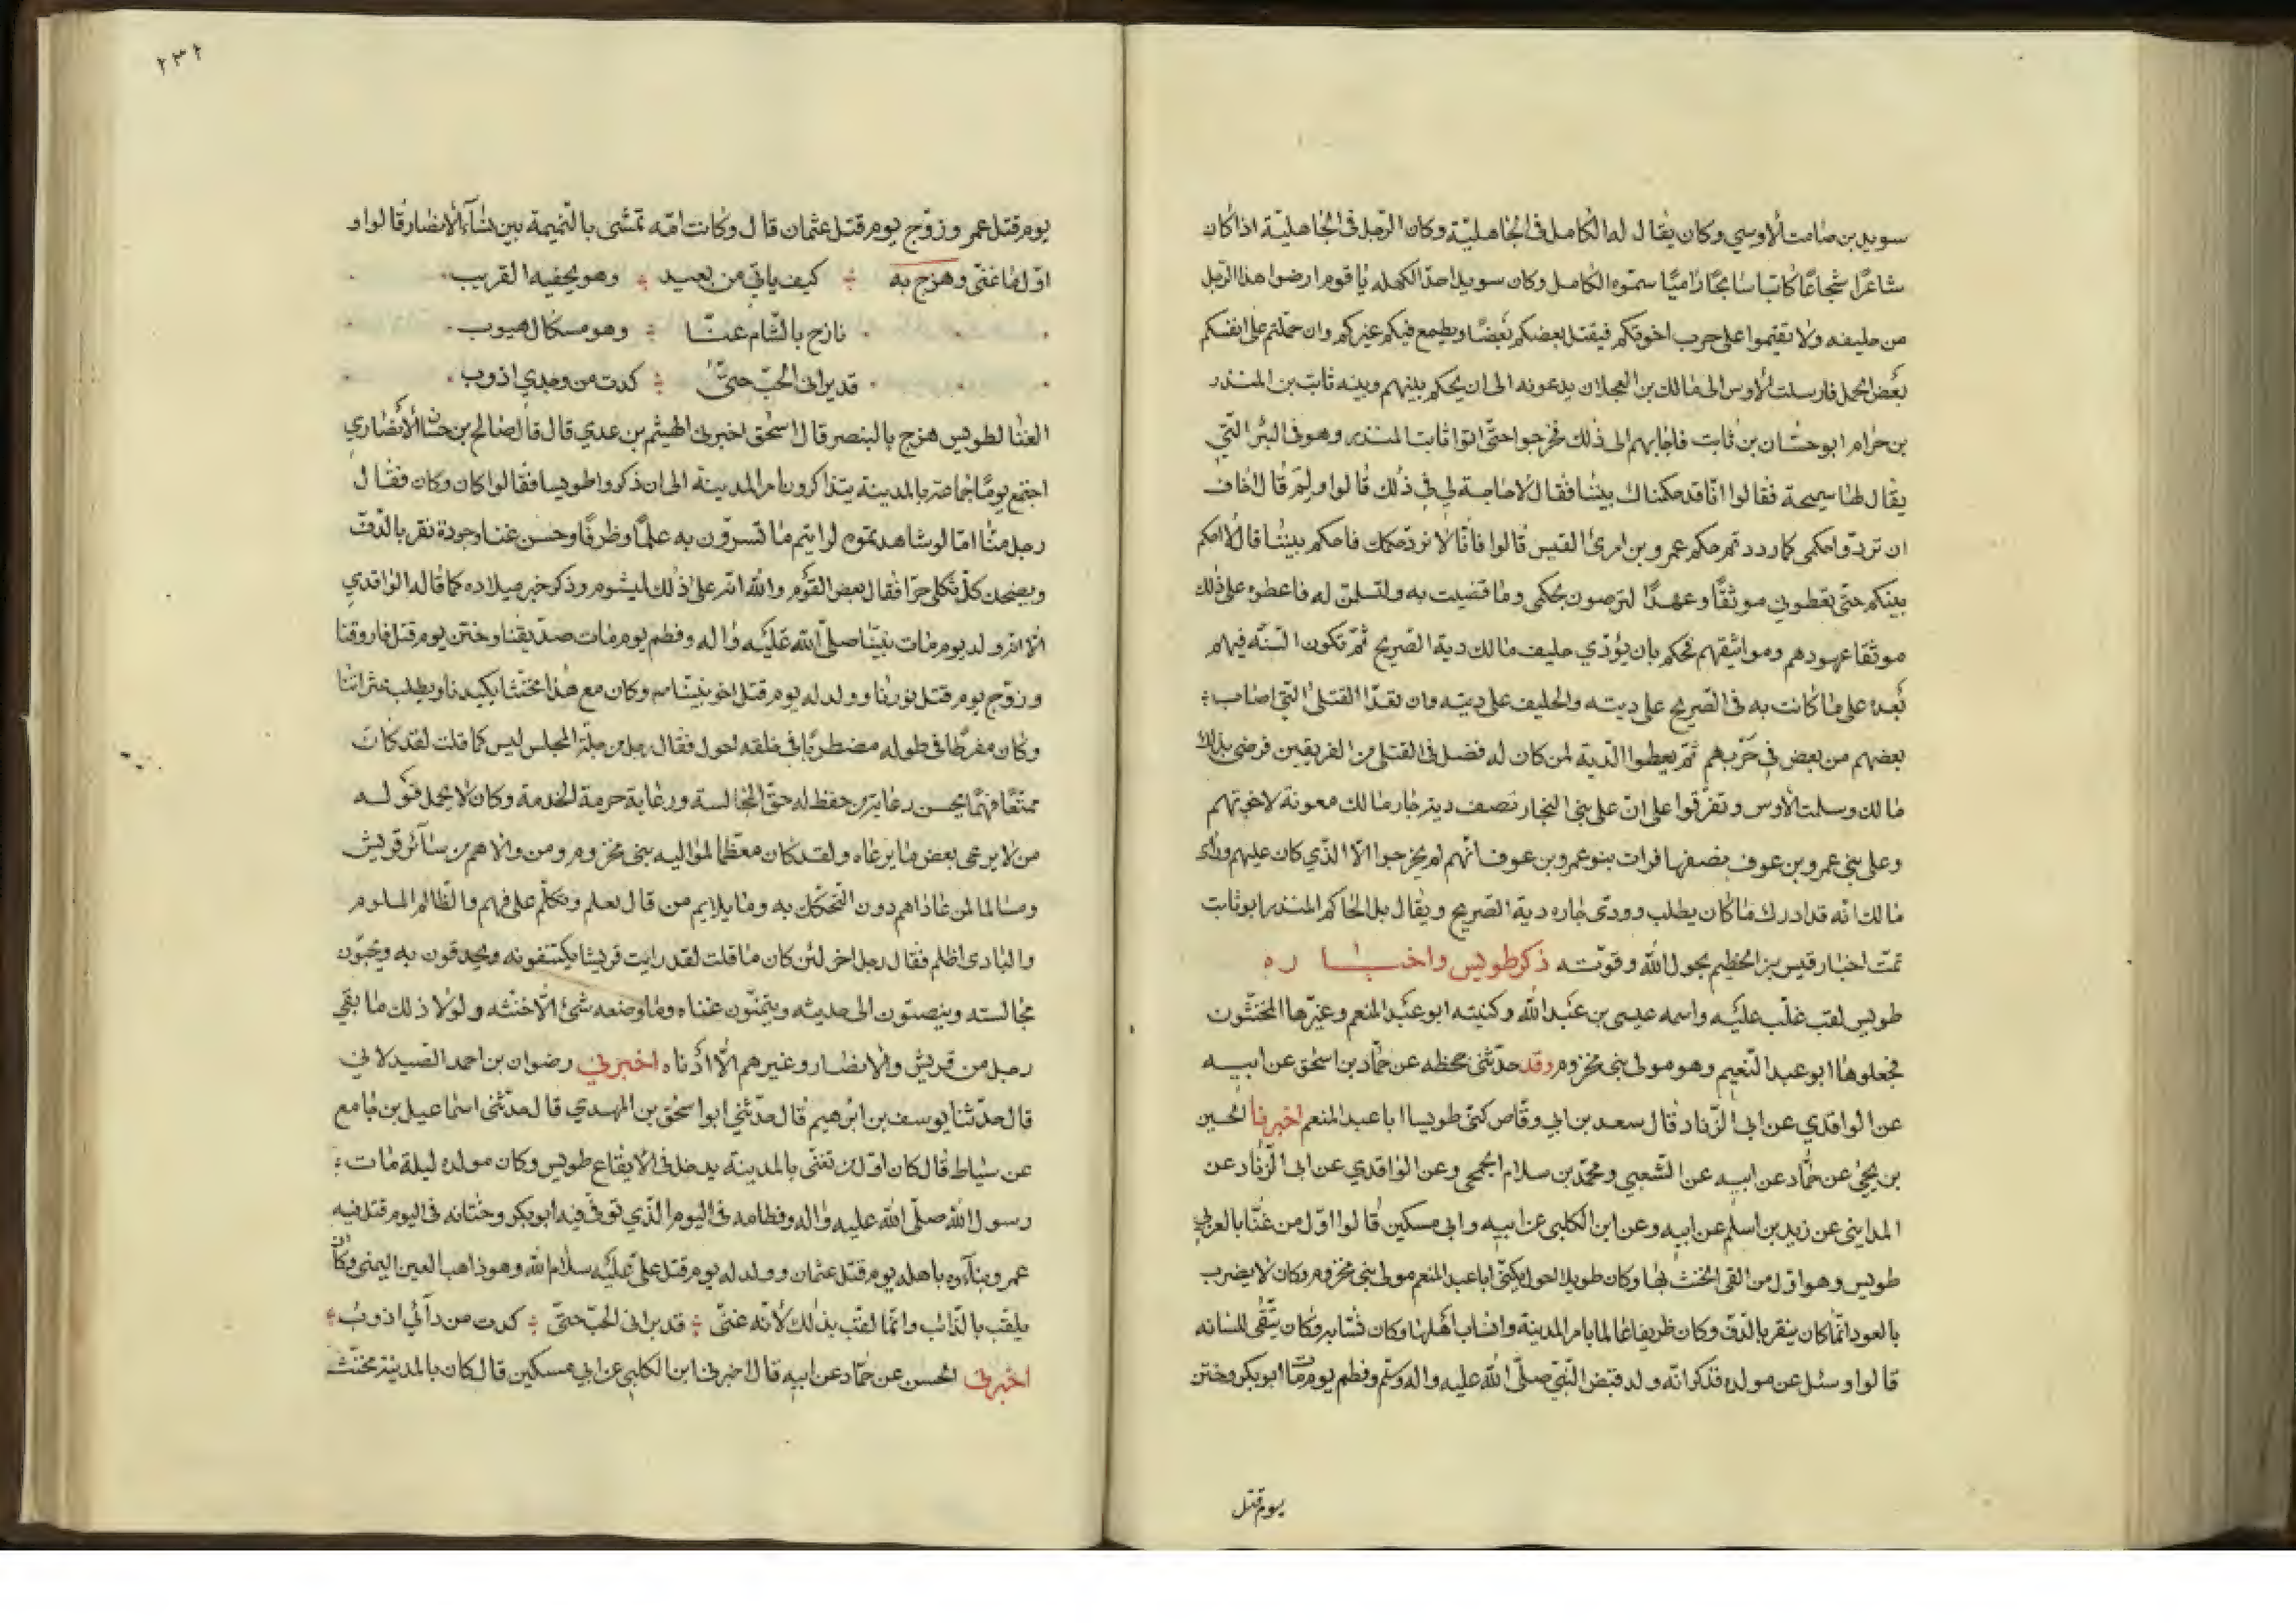 سويد بن صامت الاوسي وكان يقال له الكامل في الجاهلية وكان الرجل في الجاهلية اذا كان
شاعرا شجاعا كاتبا سابحا راميا سموه الكامل وكان سويد احد الكملة يا قوم ارضوا هذا الرجل
من حليفه ولا تقيموا على حرب اخوتكم فيقتل بعضكم بعضا ويطمع فيكم غيركم وان حملتم على انفسكم
بعض الحمل فارسلت الاوس الى مالك بن العجلان يدعونه الى ان يحكم بينهم وبينه ثابت بن المنذر
بن حرام ابو حسّان بن ثابت فاجابهم الى ذلك فخرجوا حتّى اتوا ثابت المنذر وهو في البئر التي
يقال لها سميحة فقالوا انّا قد حكمناك بيننا فقال لا حاجة لي في ذلك قالوا ولم قال اخاف
ان تردّوا حكمي كما رددتم حكم عمرو بن امرئ القيس قالوا فانّا لا نردّ حكمك فاحكم بيننا قال لا احكم
بينكم حتى تعطوني موثقًا وعهدًا لترضون بحكمي وما قضيت به ولتسلمن له فاعطوه على ذلك
موثقا عهودهم ومواثيقهم فحكم بان يؤدّي حليف مالك دية الصّريح ثمّ تكون السّنّة فيهم
بعده على ما كانت به في الصّريح على ديته والحليف على ديته وان تعدّ القتلى التي اصاب
بعضهم من بعض في حربهم ثمّ يعطوا الدّية لمن كان له فضل في القتلى من الفريقين فرضى بذلك
مالك وسلمت الاوس وتفرّقوا على انّ على بني النجار نصف دية جار مالك معونة لاخوتهم
وعلى بني عمرو بن عوف نصفها فرات بنو عمرو بن عوف انّهم لم يخرجوا الّا الّذي كان عليهم وراى
مالك انّه قد ادرك ما كان يطلب وودى جاره دية الصّريح ويقال بل الحاكم المنذر ابو ثابت
تمّت اخبار قيس بن الخطيم بحول الله وقوّته ذكر طويس واخباره
طويس لقب غلّب عليه واسمه عيسى بن عبد الله وكنيته ابو عبد المنعم وغيّرها المخنّثون
فجعلوها ابو عبد النّعيم وهو مولى بني مخزوم وقد حدّثني جحظه عن حمّاد بن اسحق عن ابيه
عن الواقدي عن ابي الزّناد قال سعد بن ابي وقّاص كنّى طويسا ابا عبد المنعم اخبرنا الحسين
بن يحيى عن حمّاد عن ابيه عن الشعبي ومحمّد بن سلام الجمحي وعن الواقدي عن ابي الزّناد عن
المدايني عن زيد بن اسلم عن ابيه وعن ابن الكلبي عن ابيه وابي مسكين قالوا اوّل من غنّا بالعربي
طويس وهو اوّل من القى الخنث بها وكان طويلا احول يكنّى ابا عبد المنعم مولى بني مخزوم وكان لا يضرب
بالعود انّما كان ينقر بالدّف وكان ظريفا عالما بامر المدينة وانساب اهلها وكان يتّقى للسانه
قالوا وسئل عن مولده فذكر انّه ولد قبض النّبيّ صلّى الله عليه واله وسلّم وفطم يوم مات ابو بكر وختن
يوم قتل
٢٣٢
يوم قتل عمر وزوّج يوم قتل عثمان قال وكانت امّه تمشى بالنّميمة بين نساء الانصار قالوا و
اوّل ما غنّى وهزج به كيف ياتي من بعيد وهو يخفيه القريب
نازح بالشّام عنّا وهو مكسال هيوب
قد براني الحبّ حتّى كدت من وجدي اذوب
الغنا لطويس هزج بالبنصر قال اسحق اخبرني الهيثم بن عدي قال قال صالح بن حسّان الانصاري
اجتمع يومًا جماعة بالمدينة يتذاكرون امر المدينة الى ان ذكروا طويسا فقالوا كان وكان فقال
رجل منّا امّا لو شاهدتموه لرايتم ما تسرّون به علمًا وظرفًا وحسن غنا وجودة نقر بالدّف
ويضحك كلّ ثكلى حرّا فقال بعض القوم والله انّه على ذلك لمشوم وذكر خبر ميلاده كما قاله الواقدي
الّا انّه ولد يوم مات نبيّنا صلّى الله عليه واله وفطم يوم مات صدّيقنا وختن يوم قتل فاروقنا
وزوّج يوم قتل نورنا وولد له يوم قتل اخو نبيّنا وكان مع هذا مخنّثا يكيدنا ويطلب عثراتنا
وكان مفرطًا في طوله مضطربًا في خلقه احول فقال رجل من جلة المجلس ليس كما قلت لقد كان
ممتعًا فهمًا يحسن رعاية من حفظ له حقّ المجالسة ورعاية حرمة الخدمة وكان لا يحمل قول
من لا يرعى بعض ما يرعاه ولقد كان معظّما لمواليه بني مخزوم ومن والاهم من سائر قريش
ومسالما لمن عاداهم دون التّحكّك به وما يلايم من قال بعلم وتكلّم على فهم والظّالم الملوم
والبادى اظلم فقال رجل اخر لئن كان ما قلت لقد رايت قريشا يكتنفونه ويحدقون به ويحبّون
مجالسته وينصتون الى حديثه ويتمنّون غناه وما وضعه شئ الّا خنثه ولولا ذلك ما بقي
رجل من قريش والانصار وغيرهم الّا ادناه اخبرني رضوان بن احمد الصّيدلاني
قال حدّثنا يوسف بن ابرهيم قال حدّثني ابو اسحق بن المهدي قال حدّثني اسماعيل بن جامع
عن سياط قال كان اوّل من تغنّى بالمدينة يدخل في الايقاع طويس وكان مولده ليلة مات
رسول الله صلّى الله عليه واله وفطامه في اليوم الّذي توفّي فيه ابو بكر وختانه في اليوم قتل فيه
عمر وبناءه باهله يوم قتل عثمان وولد له يوم قتل علي عليه سلام الله وهو ذاهب العين اليمنى وكان
يلقب بالذّائب وانّما لقّب بذلك لانّه غنّى قد براني الحبّ حتّى كدت من دآئي اذوب
اخبرني الحسن عن حمّاد عن ابيه قال اخبرنا ابن الكلبي عن ابي مسكين قال كان بالمدينة مخنّث